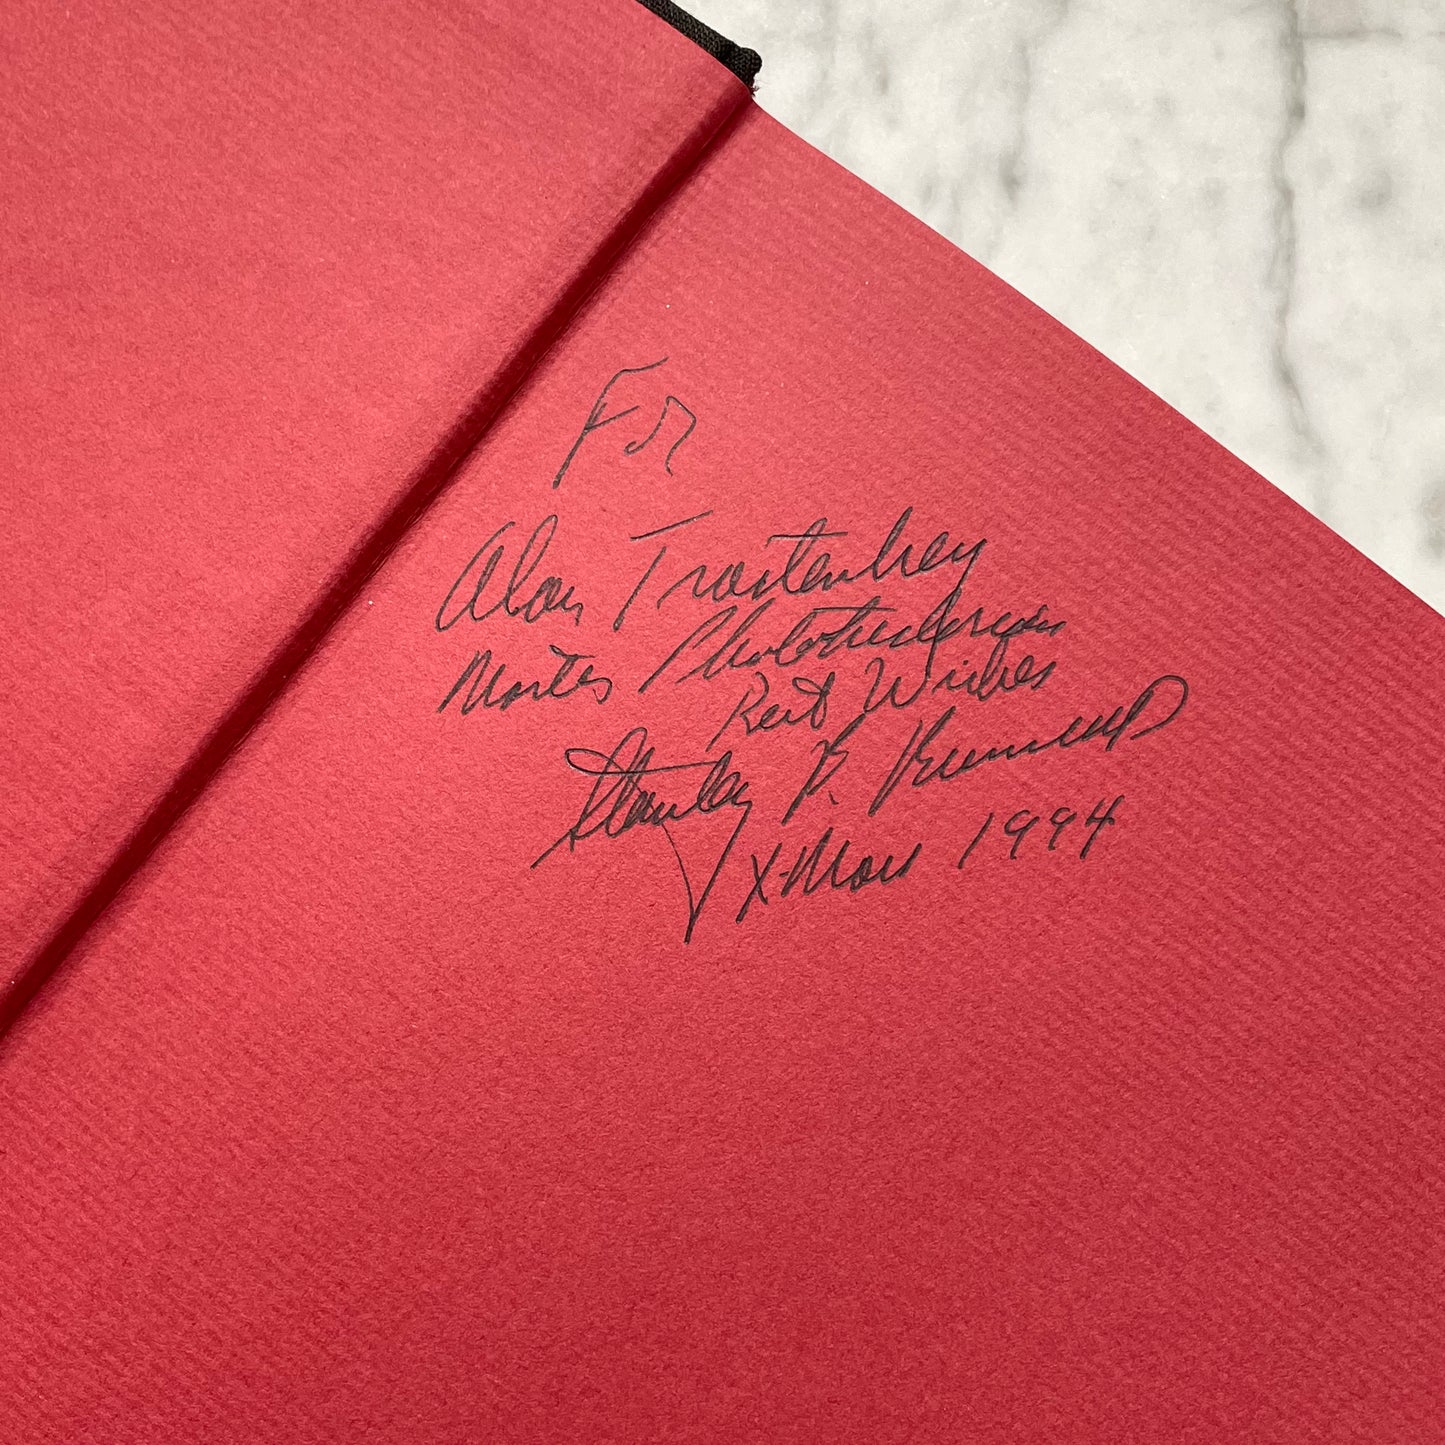 For
Alan Trachtenberg
Master Photohistorian
Best Wishes
Stanley B. Burns MD
X-Mas 1994